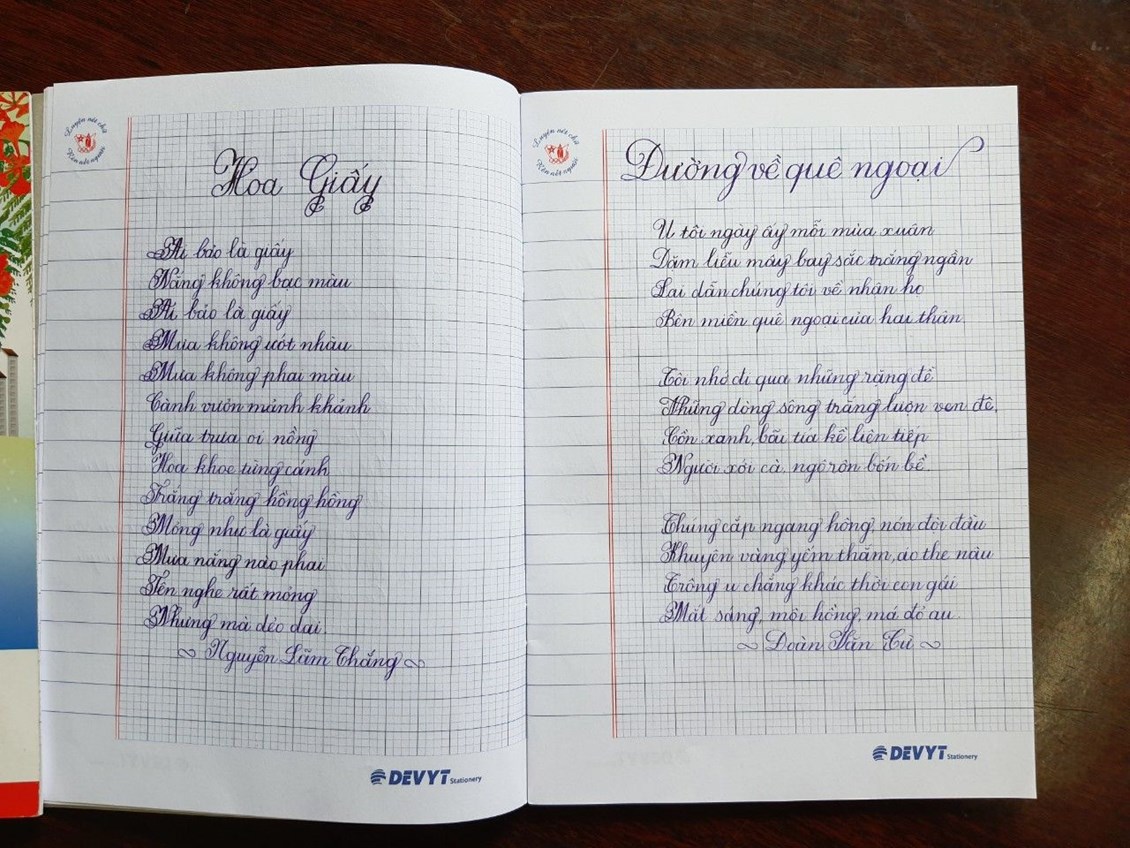 Luyện nét chữ
Rèn nết người
Hoa Giấy
Ai bảo là giấy
Nắng không bạc màu
Ai bảo là giấy
Mưa không ướt nhàu
Mưa không phai màu
Cành vươn mảnh khảnh
Giữa trưa oi nồng
Hoa khoe từng cánh
Trắng trắng hồng hồng
Mỏng như là giấy
Mưa nắng nào phai
Tên nghe rất mỏng
Nhưng mà dẻo dai.
Nguyễn Lãm Thắng
DEVYT Stationery
Luyện nét chữ
Rèn nết người
Đường về quê ngoại
U tôi ngày ấy mỗi mùa xuân
Dặm liễu mây bay sắc trắng ngần
Lại dẫn chúng tôi về nhận họ
Bên miền quê ngoại của hai thân.
Tôi nhớ đi qua những rặng đề
Những dòng sông trắng lượn ven đê,
Cồn xanh, bãi tía kề liên tiếp
Người xới cà, ngô rộn bốn bề.
Thúng cắp ngang hông, nón đội đầu
Khuyên vàng yếm thắm, áo the nâu
Trông u chẳng khác thời con gái
Mắt sáng, môi hồng, má đỏ au.
Đoàn Văn Cừ
DEVYT Stationery